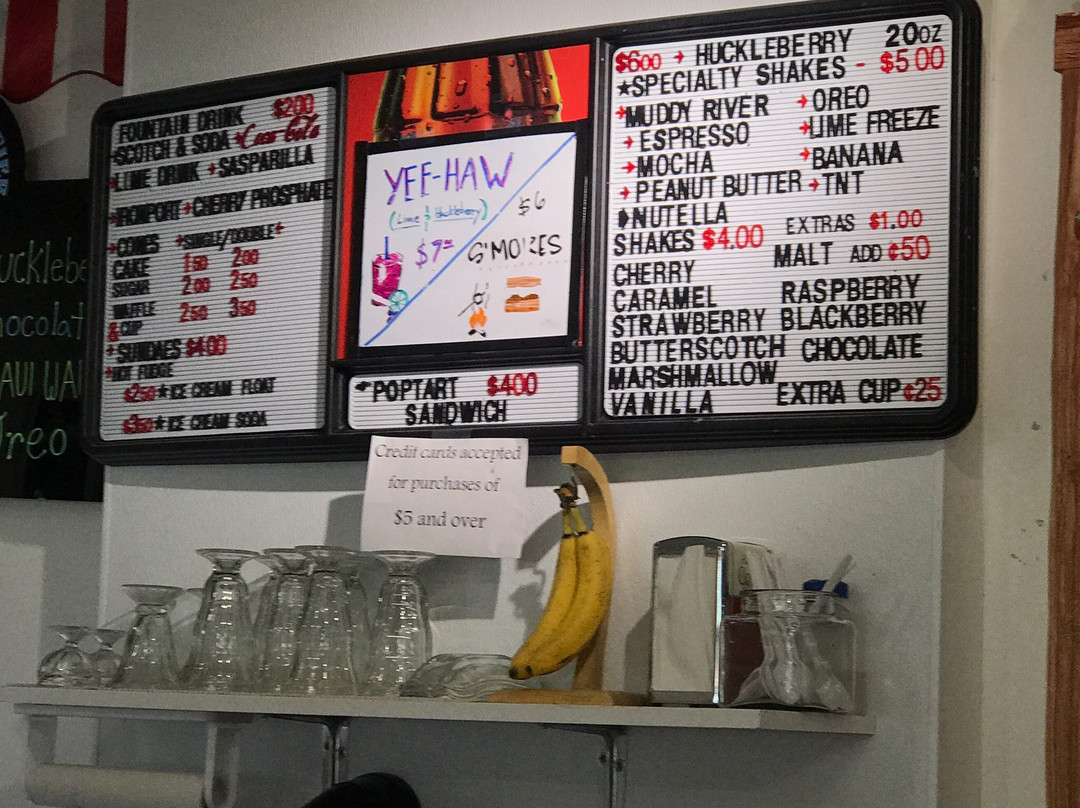 FOUNTAIN DRINK $200
SCOTCH & SODA Coca-Cola
LIME DRINK SASPARILLA
IRONPORT CHERRY PHOSPHATE
CONES SINGLE/DOUBLE
CAKE 150 200
SUGAR 200 250
WAFFLE 250 350
& CUP
SUNDAES $400
HOT FUDGE
$250 ICE CREAM FLOAT
$350 ICE CREAM SODA
YEE-HAW
(Lime & Huckleberry)
$6
S'MORES
POPTART $400
SANDWICH
$600 HUCKLEBERRY 20OZ
SPECIALTY SHAKES - $500
MUDDY RIVER OREO
ESPRESSO LIME FREEZE
MOCHA BANANA
PEANUT BUTTER TNT
NUTELLA EXTRAS $1.00
SHAKES $4.00 MALT ADD ¢50
CHERRY
CARAMEL RASPBERRY
STRAWBERRY BLACKBERRY
BUTTERSCOTCH CHOCOLATE
MARSHMALLOW
VANILLA EXTRA CUP ¢25
Credit cards accepted
for purchases of
$5 and over